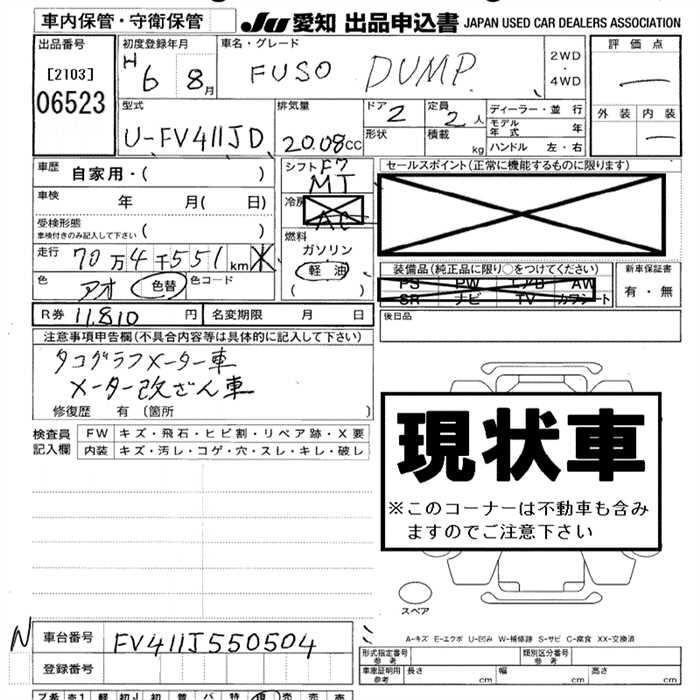 車内保管・守衛保管
JU 愛知 出品申込書 JAPAN USED CAR DEALERS ASSOCIATION
出品番号
[2103]
06523
初度登録年月
H 6 8月
車名・グレード
FUSO DUMP
2WD
・
4WD
評価点
外装 内装
型式
U-FV411JD
排気量
20.08cc
ドア 2
形状
定員 2人
積載 kg
ディーラー・並行
モデル年式 年
ハンドル 左・右
車歴 自家用・( )
車検 年 月( 日)
受検形態
車検付きのみ記入して下さい ( )
走行 70万4千551km
色 アオ 色替 色コード
シフト F7
MT
冷房
AC
燃料
ガソリン
軽油
( )
セールスポイント(正常に機能するものに限ります)
装備品(純正品に限り○をつけてください)
PS PW エアB AW
SR ナビ TV カワシート
新車保証書
有・無
R券 11,810円 名変期限 月 日
後日品
注意事項申告欄(不具合内容等は具体的に記入して下さい)
タコグラフメーター車
メーター改ざん車
修復歴 有 〔箇所 〕
検査員
記入欄
FW キズ・飛石・ヒビ割・リペア跡・X要
内装 キズ・汚し・コゲ・穴・スレ・キレ・破し
現状車
※このコーナーは不動車も含み
ますのでご注意下さい
スペア
A-キズ E-エクボ U-凹み W-補修跡 S-サビ C-腐食 XX-交換済
N 車台番号 FV411J550504
登録番号
形式指定番号
参考
類別区分番号
参考
車庫証明用
参考
長さ cm 幅 cm 高さ cm